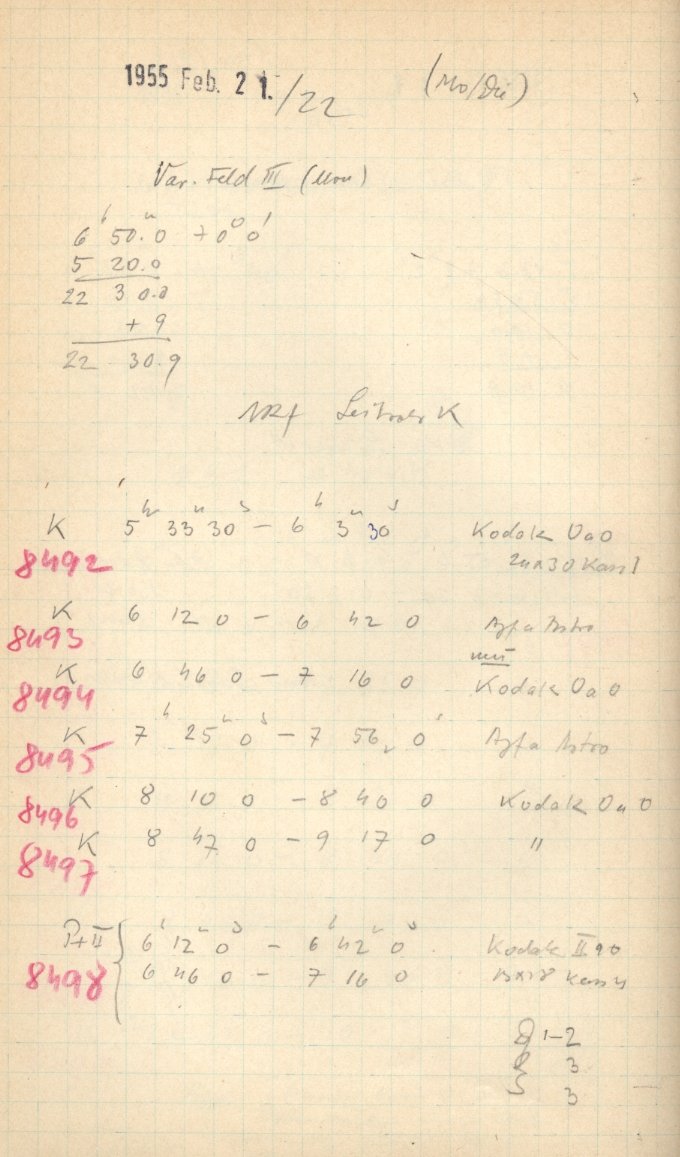 1955 Feb. 21./22 (Mo/Die)
Var. Feld III (Mon)
6h 50m.0 +0° 0'
5 20.0
22 30.0
+ 9
22 30.9
K 5h 33m 30s – 6h 3m 30s Kodak OaO
8492 24x30 Kass 1
K 6 12 0 – 6 42 0 Agfa Astro
8493
K 6 46 0 – 7 16 0 Kodak OaO
8494
K 7h 25m 0s – 7 56 0 Agfa Astro
8495
K 8 10 0 – 8 40 0 Kodak OaO
8496
K 8 47 0 – 9 17 0 "
8497
P+II 6h 12m 0s – 6h 42m 0s Kodak IIaO
8498 6 46 0 – 7 16 0 Kass
1–2
3
3